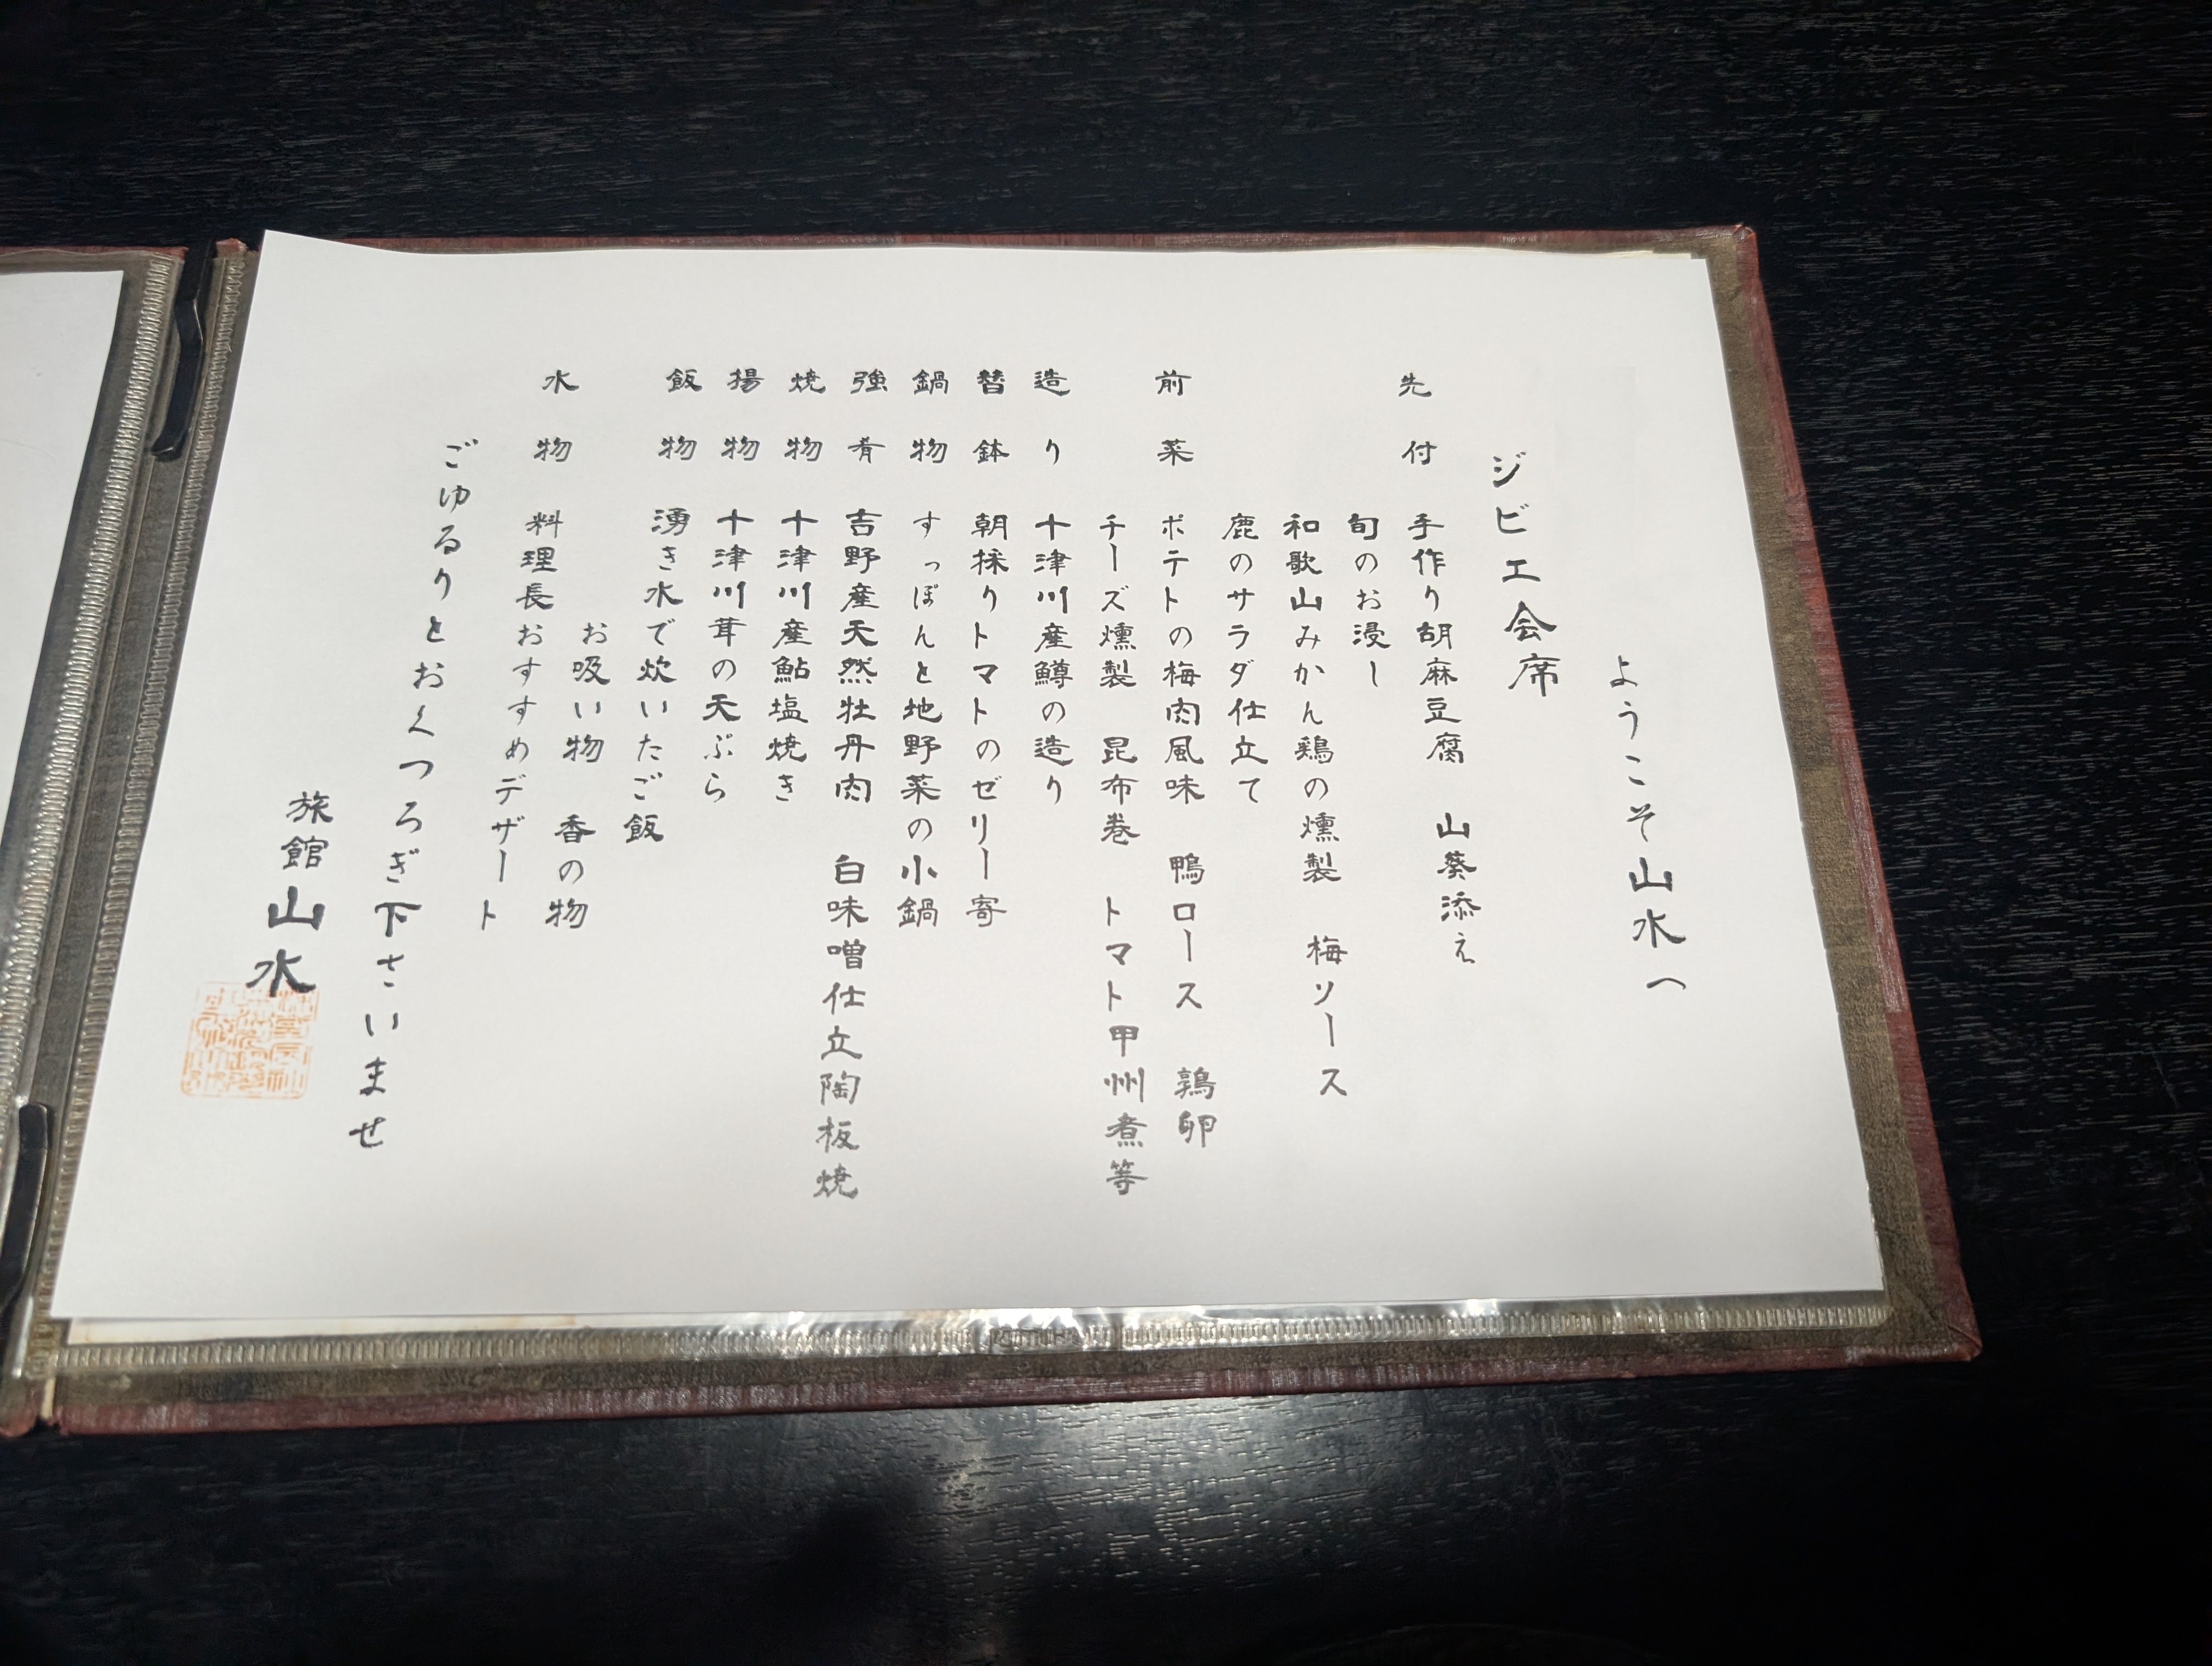 ようこそ山水へ
ジビエ会席
先付 手作り胡麻豆腐 山葵添え
旬のお浸し
和歌山みかん鶏の燻製 梅ソース
鹿のサラダ仕立て
前菜 ポテトの梅肉風味 鴨ロース 鶉卵
チーズ燻製 昆布巻 トマト甲州煮等
造り 十津川産鱒の造り
替鉢 朝採りトマトのゼリー寄
鍋物 すっぽんと地野菜の小鍋
強肴 吉野産天然牡丹肉 白味噌仕立陶板焼
焼物 十津川産鮎塩焼き
揚物 十津川茸の天ぷら
飯物 湧き水で炊いたご飯
お吸い物 香の物
水物 料理長おすすめデザート
ごゆるりとおくつろぎ下さいませ
旅館山水